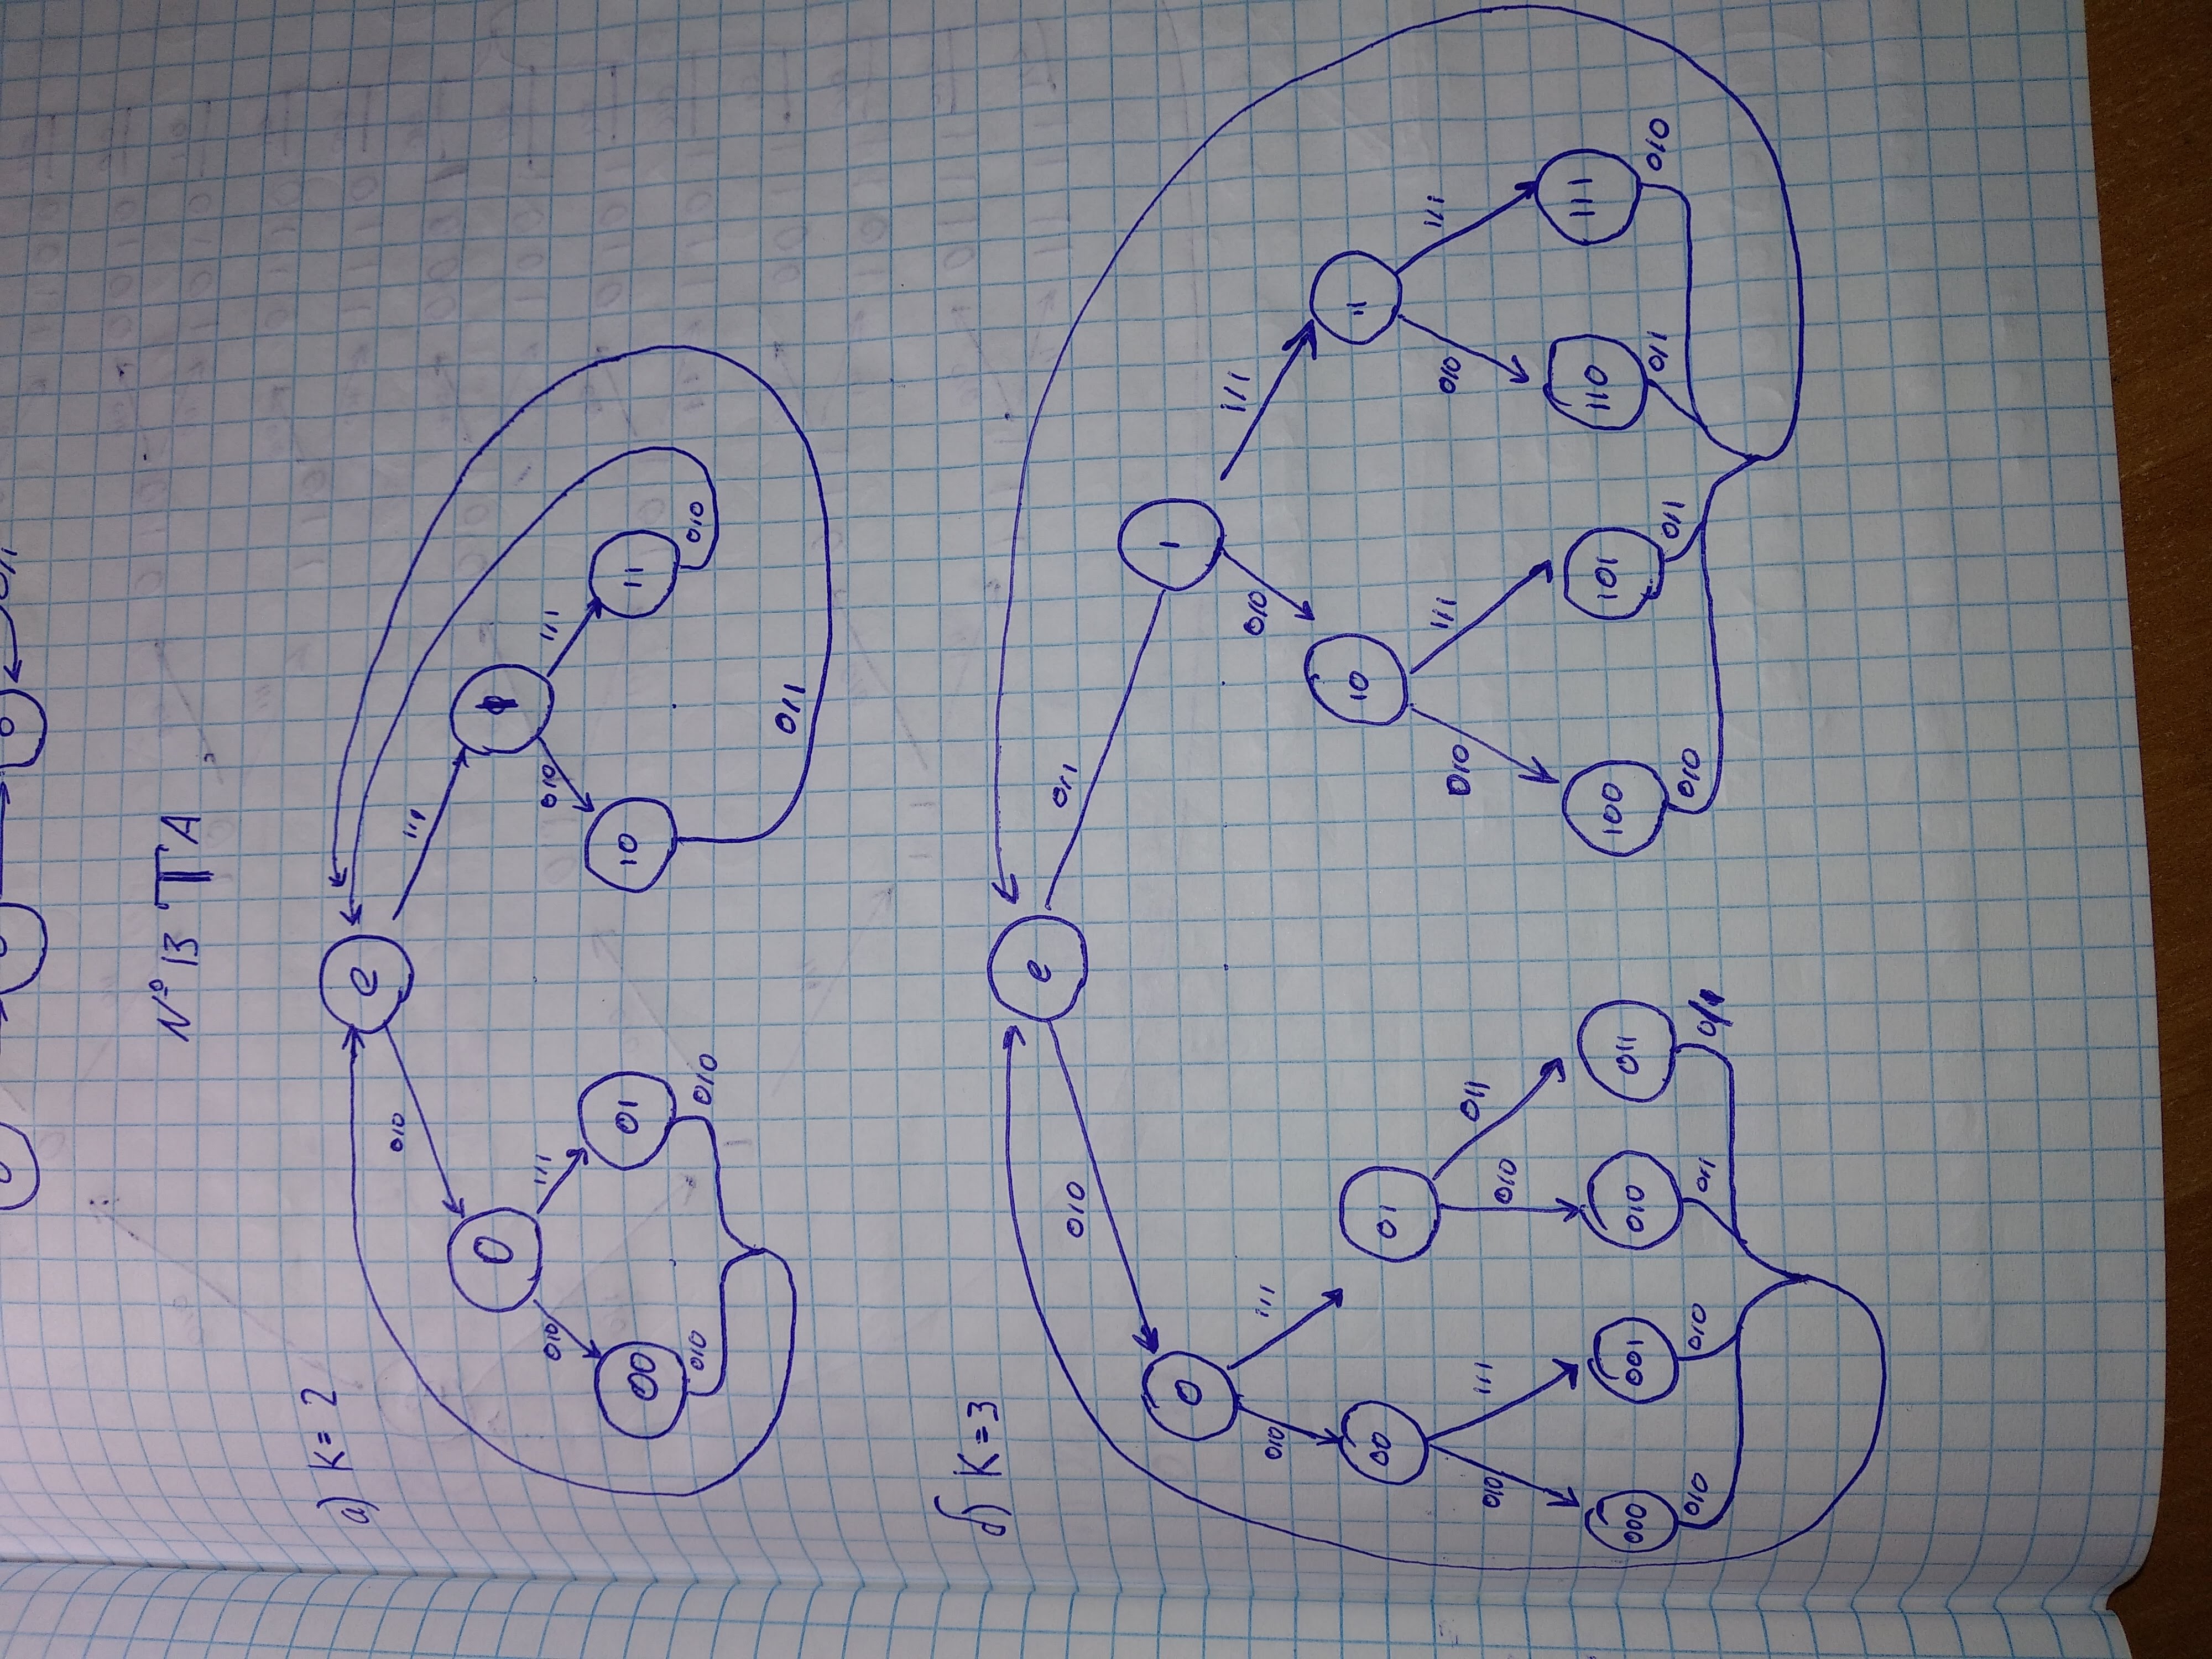 0/1
№ 13 ТА
а) K = 2
e
0/0 1/1
0 1
0/0 1/1 0/0 1/1
00 01 10 11
0/0 0/0 0/0
0/1
б) K = 3
e
0/0 0/1
0 1
0/0 1/1 0/0 1/1
00 01 10 11
0/0 1/1 0/0 0/1 0/0 1/1 0/0 1/1
000 001 010 011 100 101 110 111
0/0 0/0 0/1 0/0 0/1 0/1 0/0